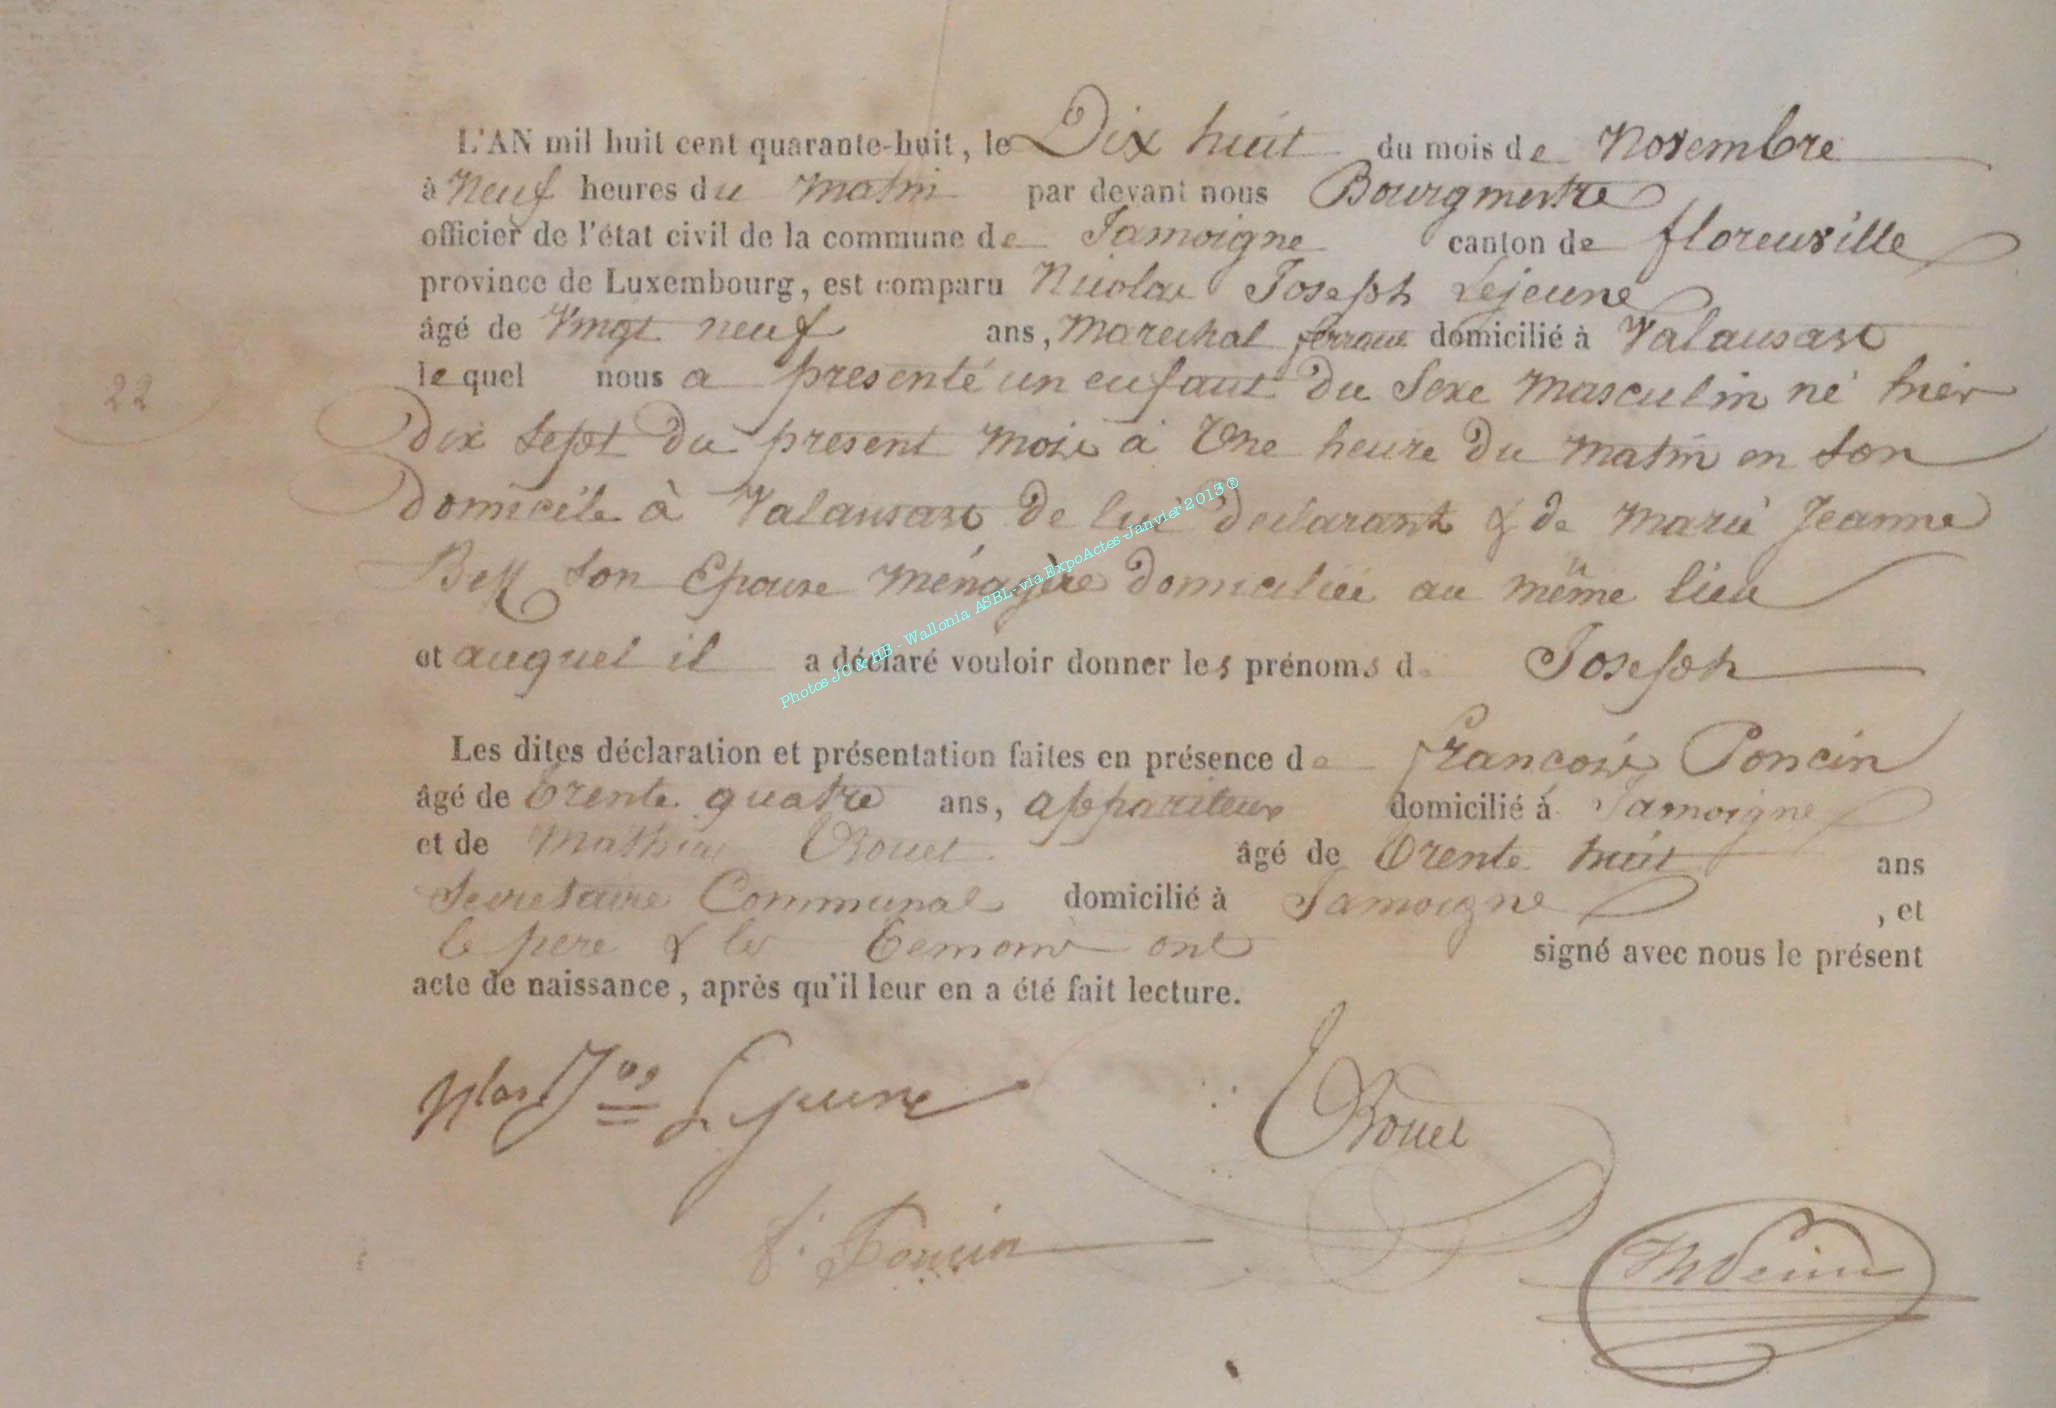 L'AN mil huit cent quarante-huit, le Dix huit du mois de Novembre
à Neuf heures du matin par devant nous Bourgmestre
officier de l'état civil de la commune de Jamoigne canton de florenville
province de Luxembourg, est comparu Nicolas Joseph Lejeune
âgé de Vingt neuf ans, Marechal ferrant domicilié à Valansart
le quel nous a presenté un enfant du Sexe Masculin né hier
22
dix sept du present mois à Une heure du matin en son
domicile à Valansart de lui declarant & de Marie Jeanne
son Epouse Ménagère domiciliée au même lieu
et auquel il a déclaré vouloir donner les prénoms de Joseph
Les dites déclaration et présentation faites en présence de François Poncin
âgé de trente quatre ans, appariteur domicilié à Jamoigne
et de Mathieu Rouel âgé de trente huit ans
Secretaire Communal domicilié à Jamoigne, et
le père & les temoins ont signé avec nous le présent
acte de naissance, après qu'il leur en a été fait lecture.
Nlas Jos Lejeune
Rouel
f. Poncin
Photos JC & HB - Wallonia ASBL - via ExpoActes - Janvier 2013 ®